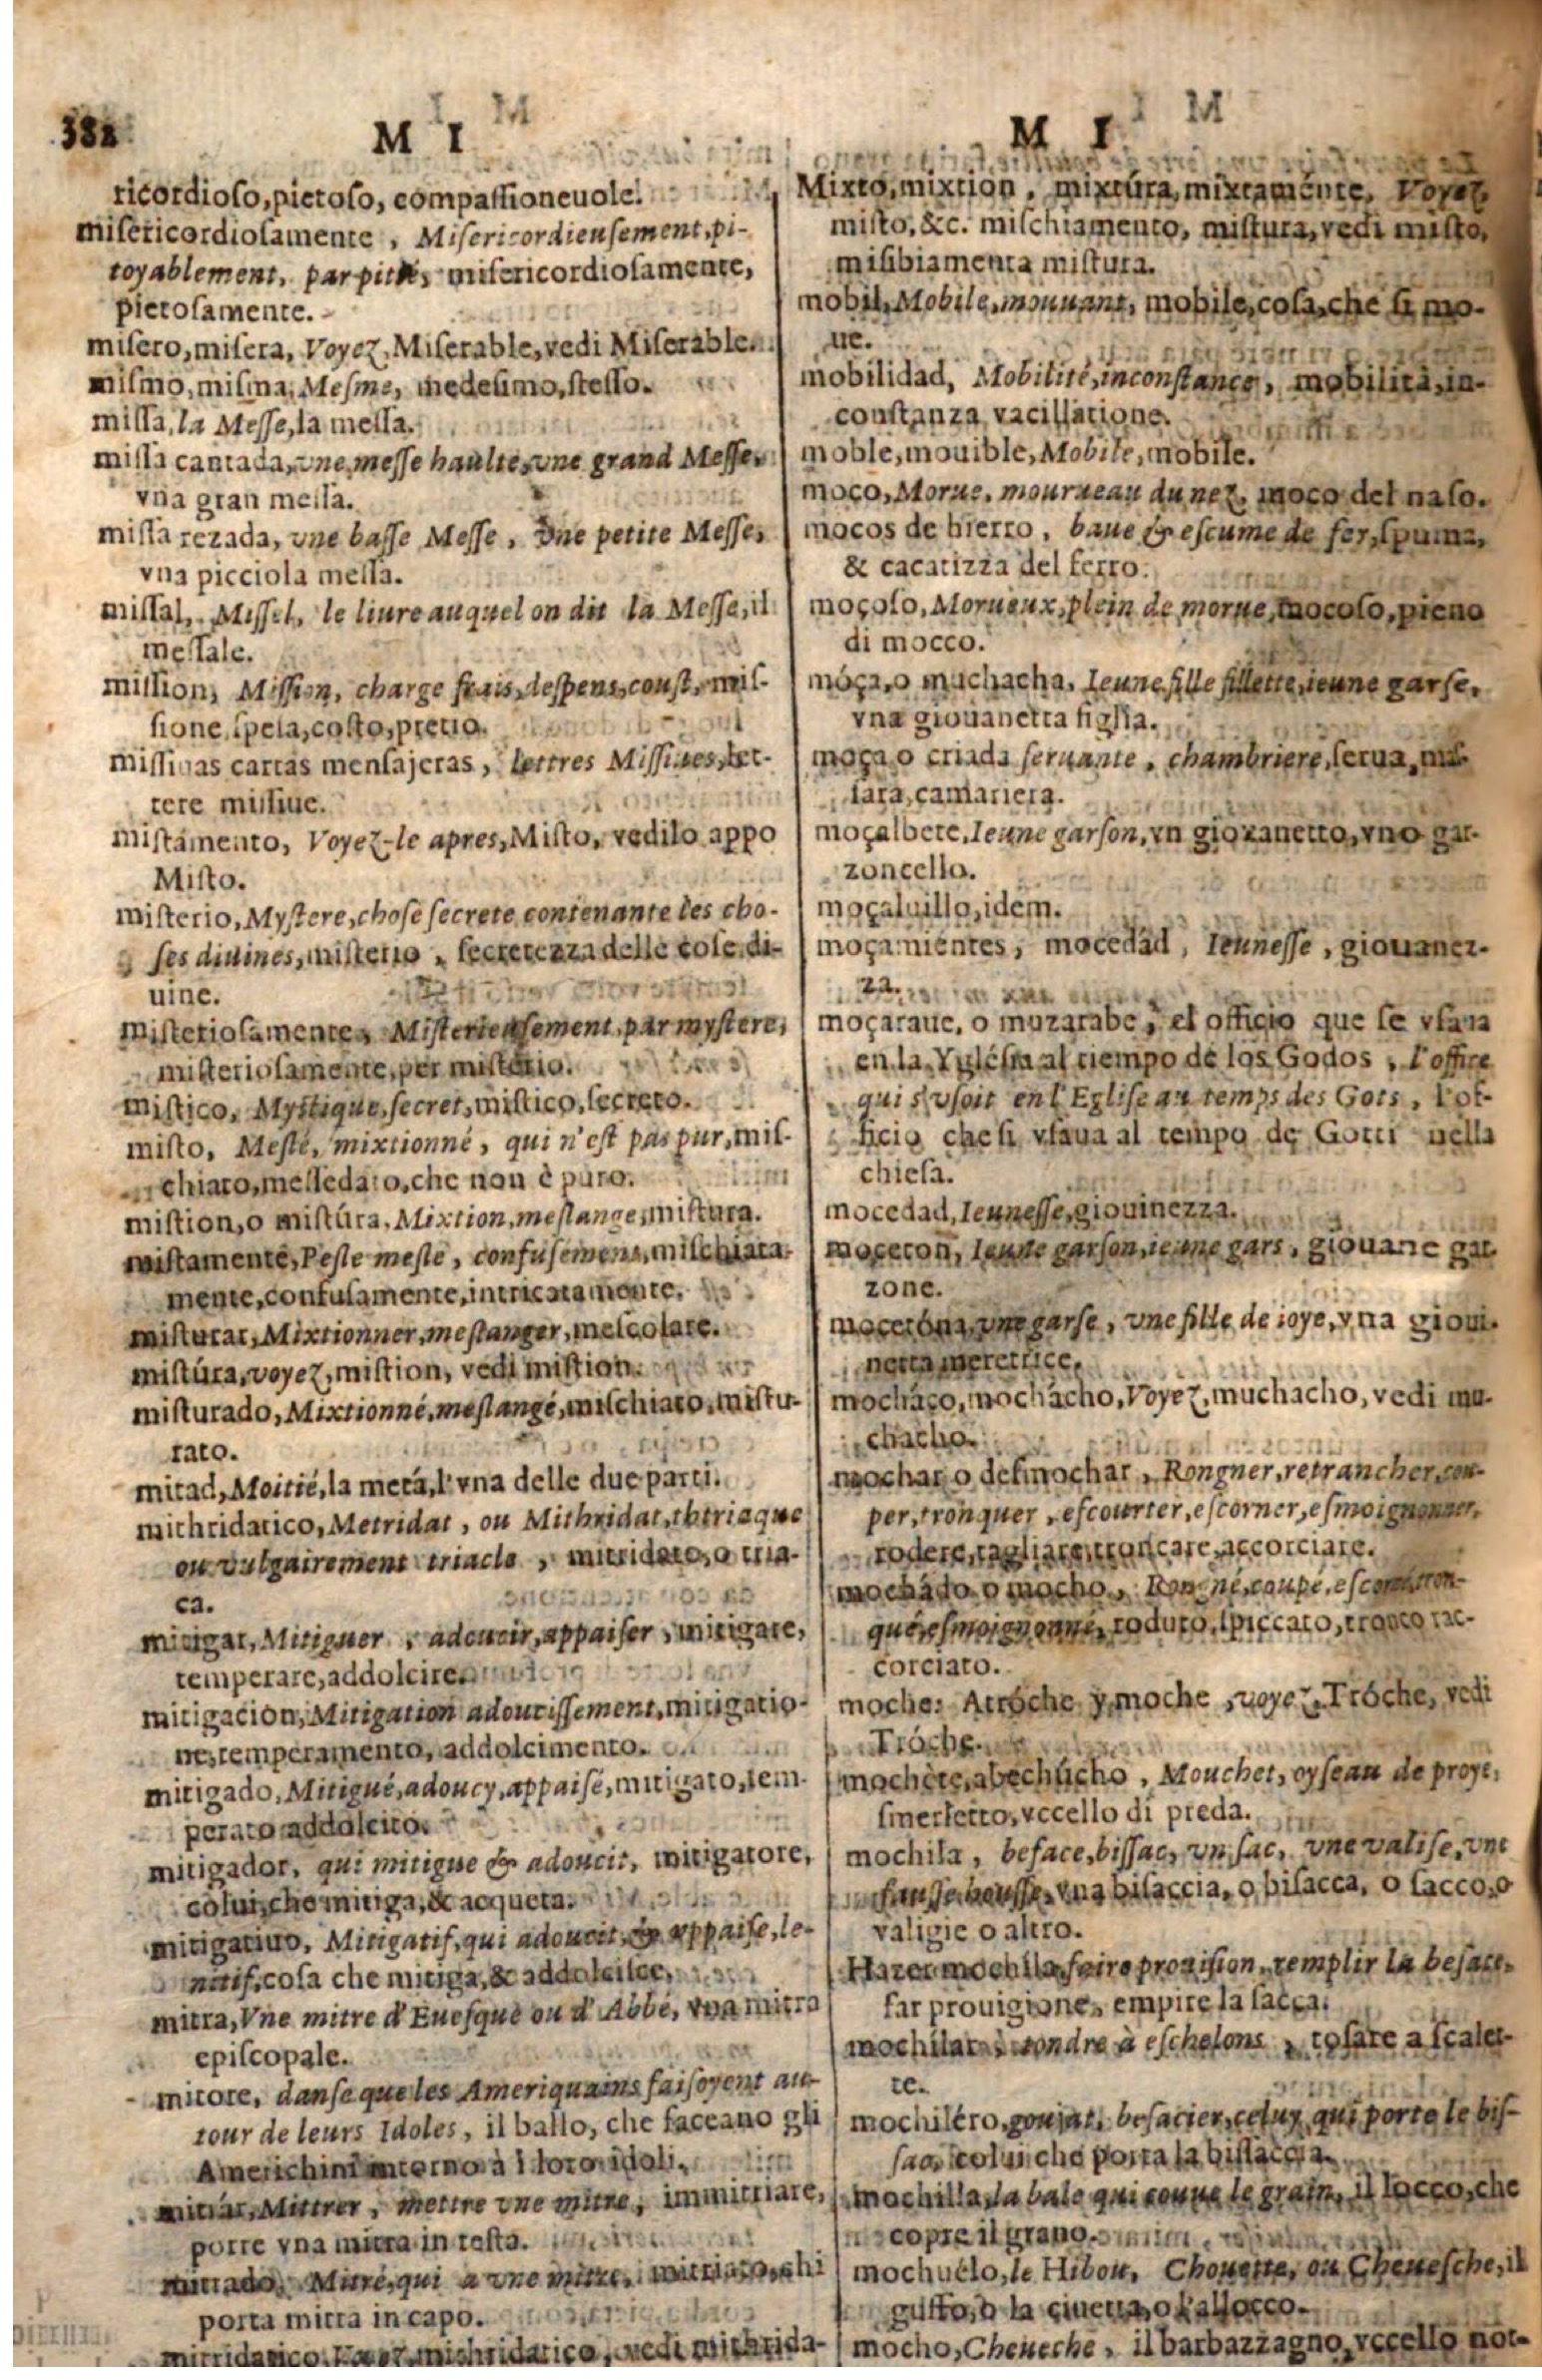 382
M I
ricordioſo,pietoſo, compaſſioneuole.
miſericordioſamente , Miſericordieuſement,pi-
toyablement, par pitié, miſericordioſamente,
pietoſamente.
miſero,miſera, Voyez, Miſerable,vedi Miſerable.
miſmo,miſma, Meſme, medeſimo,ſteſſo.
miſſa, la Meſſe,la meſſa.
miſſa cantada,vne meſſe haulte,vne grand Meſſe,
vna gran meſſa.
miſſa rezada, vne baſſe Meſſe , vne petite Meſſe,
vna picciola meſſa.
miſſal, Miſſel, le liure auquel on dit la Meſſe,il
meſſale.
miſſion, Miſſion, charge frais,deſpens,couſt, miſ-
ſione,ſpeſa,coſto,pretio.
miſſiuas cartas menſajeras , lettres Miſſiues,let-
tere miſſiue.
miſtamento, Voyez-le apres,Miſto, vedilo appo
Miſto.
miſterio,Myſtere,choſe ſecrete contenante les cho-
ſes diuines,miſterio , ſecretezza delle coſe di-
uine.
miſterioſamente, Miſterieuſement,par myſtere,
miſterioſamente,per miſterio.
miſtico, Myſtique,ſecret,miſtico,ſecreto.
miſto, Meſlé, mixtionné, qui n'eſt pas pur,miſ-
chiato,meſſedato,che non è puro.
miſtion,o miſtúra,Mixtion,meſlange,miſtura.
miſtamente,Peſle meſle , confuſemens,miſchiata-
mente,confuſamente,intricatamente.
miſturar,Mixtionner,meſlanger,meſcolare.
miſtúra,voyez,miſtion, vedi miſtion.
miſturado,Mixtionné,meſlangé,miſchiato,miſtu-
rato.
mitad,Moitié,la metá,l'vna delle due parti.
mithridatico,Metridat , ou Mithridat,thtriaque
ou vulgairement triacle , mitridato,o tria-
ca.
mitigar,Mitiguer , adoucir,appaiſer , mitigare,
temperare,addolcire.
mitigacion,Mitigation adouciſſement,mitigatio-
ne,temperamento, addolcimento.
mitigado,Mitigué,adoucy,appaiſé,mitigato,tem-
perato addolcito.
mitigador, qui mitigue & adoucit, mitigatore,
colui,che mitiga,& acqueta.
mitigatiuo, Mitigatif,qui adoucit,& appaiſe,le-
nitif,coſa che mitiga,& addolciſce.
mitra,Vne mitre d'Eueſque ou d'Abbé, vna mitra
epiſcopale.
mitote, danſe que les Ameriquains faiſoyent au-
tour de leurs Idoles, il ballo, che faceano gli
Americhini intorno à i loro idoli.
mitrár,Mittrer , mettre vne mitre, immitriare,
porre vna mitra in teſta.
mitrado, Mitré,qui a vne mitre, mitriato,chi
porta mitra in capo.
mitridatico,Voyez,mithridatico, vedi mithrida-
M I
Mixto,mixtion, mixtúra,mixtaménte, Voyez,
miſto,&c. miſchiamento, miſtura,vedi miſto,
miſibiamenta miſtura.
mobil,Mobile,mouuant, mobile,coſa,che ſi mo-
ue.
mobilidad, Mobilité,inconſtance, mobilità,in-
conſtanza vacillatione.
moble,mouible,Mobile,mobile.
moco,Morue, mourueau du nez, moco del naſo.
mocos de hierro , baue & eſcume de fer,ſpuma,
& cacatizza del ferro.
moçoſo,Morueux,plein de morue,mocoſo,pieno
di mocco.
móça,o muchacha, Ieune fille fillette,ieune garſe,
vna giouanetta figlia.
moça o criada ſeruante , chambriere,ſerua,maſ-
ſara,camariera.
moçalbete,Ieune garſon,vn giouanetto,vno gar-
zoncello.
moçaluillo,idem.
moçamientes, mocedád, Ieuneſſe , giouanez-
za.
moçaraue, o muzarabe, el officio que ſe vſaua
en la Ygléſia al tiempo de los Godos , l'office
qui s'vſoit en l'Egliſe au temps des Gots , l'of-
ficio che ſi vſaua al tempo de Gotti nella
chieſa.
mocedad,Ieuneſſe,giouinezza.
moceton, Ieune garſon,ieune gars , giouane gar-
zone.
mocetóna,vne garſe , vne fille de ioye,vna gioui-
netta meretrice.
mocháço,mochácho,Voyez,muchacho,vedi mu-
chacho.
mochar o deſmochar , Rongner,retrancher,cou-
per,tronquer , eſcourter,eſcorner,eſmoignonner,
rodere,tagliare,troncare,accorciare.
mochádo o mocho , Rongné,coupé,eſcorné,tron-
qué,eſmoignonné, roduto,ſpiccato,tronco rac-
corciato.
moche: Atróche y moche ,voyez,Tróche, vedi
Tróche.
mochete,abechúcho , Mouchet, oyſeau de proye,
ſmerletto,vccello di preda.
mochila , beſace,biſſac, vn ſac, vne valiſe,vne
fauſſe houſſe,vna biſaccia, o biſacca, o ſacco,o
valigie o altro.
Hazer mochila,faire prouiſion, remplir la beſace,
far prouigione, empire la ſacca.
mochilar , tondre à eſchelons , toſare a ſcalet-
te.
mochiléro,goujat, beſacier,celuy qui porte le biſ-
ſac, colui che porta la biſſaccia.
mochilla,la bale qui couue le grain, il locco,che
copre il grano.
mochuélo,le Hibou, Chouette, ou Cheueſche,il
guffo,o la ciuetta,o l'allocco.
mocho,Cheueche , il barbazzagno,vccello not-